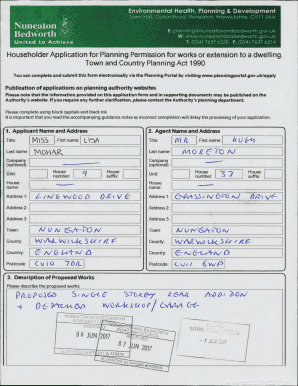 Nuneaton
Bedworth
United to Achieve
Environmental Health, Planning & Development
Town Hall, Coton Road, Nuneaton, Warwickshire, CV11 5AA
Householder Application for Planning Permission for works or extension to a dwelling.
Town and Country Planning Act 1990
You can complete and submit this form electronically via the Planning Portal by visiting www.planningportal.gov.uk/apply
Publication of applications on planning authority websites
Please note that the information provided on this application form and in supporting documents may be published on the
Authority's website. If you require any further clarification, please contact the Authority's planning department.
Please complete using block capitals and black ink
It is important that you read the accompanying guidance notes as incorrect completion will delay the processing of your application.
1. Applicant Name and Address
Title: MISS First name: LISA
Last name: MOHAR
Company (optional):
Unit: House number: 9 House suffix:
House name:
Address 1: LINGWOOD DRIVE
Address 2:
Address 3:
Town: NUNEATON
County: WARWICKSHIRE
Country: ENGLAND
Postcode:
2. Agent Name and Address
Title: MR First name: HUGH
Last name: MORETON
Company (optional):
Unit: House number: 37 House suffix:
House name:
Address 1: GRASSINGTON DRIVE
Address 2:
Address 3:
Town: NUNEATON
County: WARWICKSHIRE
Country: ENGLAND
Postcode: CV11 6WP
3. Description of Proposed Works
Please describe the proposed works:
PROPOSED SINGLE STOREY REAR ADDITION
+ DETACHED WORKSHOP/GARAGE
08 JUN 2017
07 JUN 2017
- 1 JUN 2017